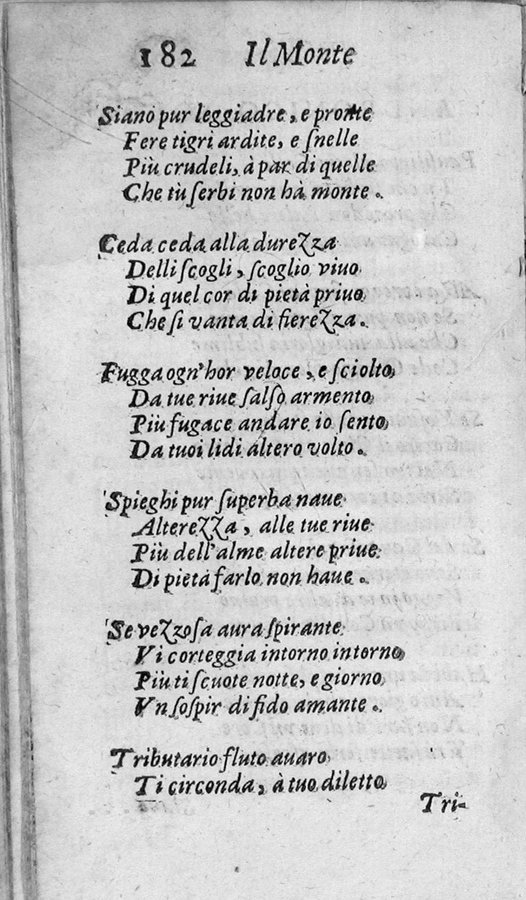 182 Il Monte
Siano pur leggiadre, e pronte
Fere tigri ardite, e ſnelle
Più crudeli, à par di quelle
Che tù ſerbi non hà monte.
Ceda ceda alla durezza
Delli ſcogli, ſcoglio viuo
Di quel cor di pietà priuo
Che ſi vanta di fierezza.
Fugga ogn'hor veloce, e ſciolto,
Da tue riue ſalſo armento,
Più fugace andare io ſento,
Da tuoi lidi altero volto.
Spieghi pur ſuperba naue
Alterezza, alle tue riue
Più dell'alme altere priue
Di pietà farlo non haue.
Se vezzoſa aura ſpirante
Vi corteggia intorno intorno,
Più ti ſcuote notte, e giorno,
Vn ſoſpir di fido amante.
Tributario fluto auaro,
Ti circonda, à tuo diletto,
Tri-